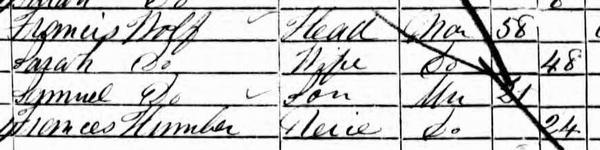 Francis Wolf Head Mar 58
Sarah Do Wife Do 48
Samuel Do Son Un 21
Frances Humber Neice Do 24